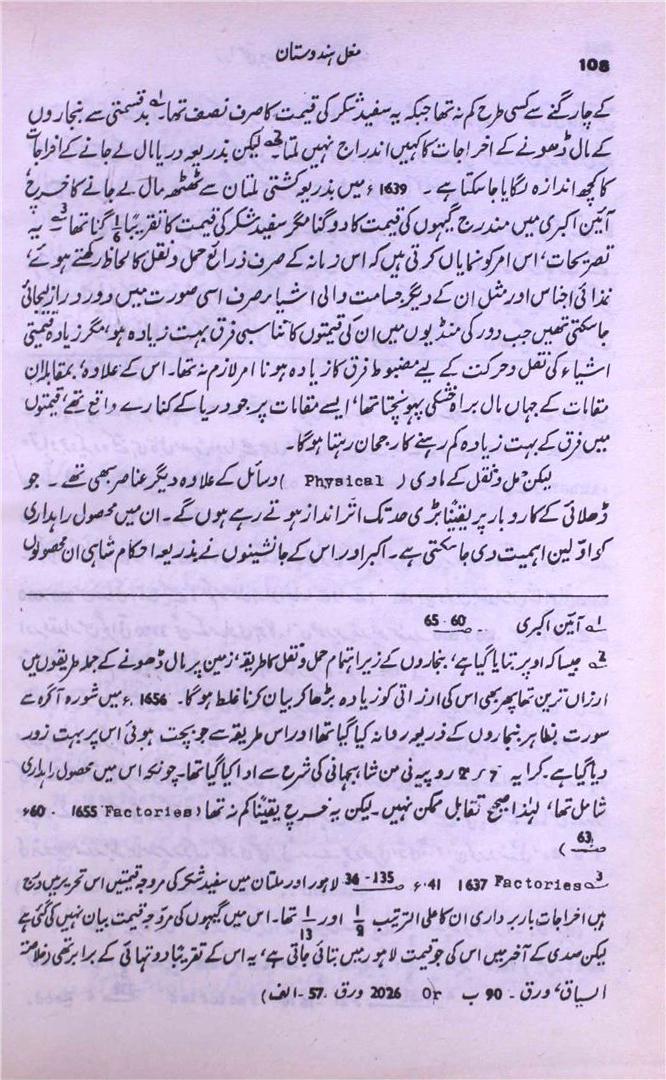 108
مغل ہندوستان
کے چار گنے سے کسی طرح کم نہ تھا جبکہ یہ سفید شکر کی قیمت کا صرف نصف تھا۔1 بدقسمتی سے بنجاروں
کے مال ڈھونے کے اخراجات کا کہیں اندراج نہیں ملتا۔2 لیکن بذریعہ دریا مال لے جانے کے اخراجات
کا کچھ اندازہ لگایا جاسکتا ہے۔ 1639ء میں بذریعہ کشتی ملتان سے ٹھٹھہ مال لے جانے کا خرچ،
آئین اکبری میں مندرج گیہوں کی قیمت کا دو گنا مگر سفید شکر کی قیمت کا تقریباً 1/6 گنا تھا۔3 یہ
تصریحات، اس امر کو نمایاں کرتی ہیں کہ اس زمانہ کے صرف ذرائع حمل و نقل کا لحاظ رکھتے ہوئے،
غذائی اجناس اور مثل ان کے دیگر جسامت والی اشیاء صرف اسی صورت میں دور دراز لیجائی
جاسکتی تھیں جب دور کی منڈیوں میں ان کی قیمتوں کا تناسبی فرق بہت زیادہ ہو، مگر زیادہ قیمتی
اشیاء کی نقل و حرکت کے لیے مضبوط فرق کا زیادہ ہونا امر لازم نہ تھا۔ اس کے علاوہ، بمقابلہ ان
مقامات کے جہاں مال براہ خشکی پہونچتا تھا، ایسے مقامات پر جو دریا کے کنارے واقع تھے، قیمتوں
میں فرق کے بہت زیادہ کم رہنے کا رجحان رہتا ہوگا۔
لیکن حمل و نقل کے مادی (Physical) وسائل کے علاوہ دیگر عناصر بھی تھے۔ جو
ڈھلائی کے کاروبار پر یقیناً بڑی حد تک اثر انداز ہوتے رہے ہوں گے۔ ان میں محصول راہداری
کو اوّلین اہمیت دی جاسکتی ہے۔ اکبر اور اس کے جانشینوں نے بذریعہ احکام شاہی ان محصولوں
1 آئین اکبری ۔۔ صـ 60-65
2 جیسا کہ اوپر بتایا گیا ہے، بنجاروں کے زیر اہتمام حمل و نقل کا طریقہ، زمین پر مال ڈھونے کے جملہ طریقوں میں
ارزاں ترین تھا پھر بھی اس کی ارزانی کو زیادہ بڑھا کر بیان کرنا غلط ہوگا۔ 1656ء میں شورہ آگرہ سے
سورت بظاہر بنجاروں کے ذریعہ روانہ کیا گیا تھا اور اس طریقہ سے جو بچت ہوئی اس پر بہت زور
دیا گیا ہے۔ کرایہ روپیہ فی من شاہجہانی کی شرح سے ادا کیا گیا تھا۔ چونکہ اس میں محصول راہداری
شامل تھا، لہٰذا صحیح تقابل ممکن نہیں۔ لیکن یہ خرچ یقیناً کم نہ تھا (Factories 1655 ۔ 60ء
صـ 63)
3 Factories 1637 ۔ 41ء صـ 135-34 لاہور اور ملتان میں سفید شکر کی مروجہ قیمتیں اس تحریر میں درج
ہیں اخراجات باربرداری ان کا علی الترتیب 1/9 اور 1/13 تھا۔ اس میں گیہوں کی مروّجہ قیمت بیان نہیں کی گئی ہے
لیکن صدی کے آخر میں اس کی جو قیمت لاہور میں بتائی جاتی ہے، یہ اس کے تقریباً دو تہائی کے برابر تھی (خلاصۃ
السیاق، ورق۔ 90 ب Or 2026 ورق۔ 57۔ الف)